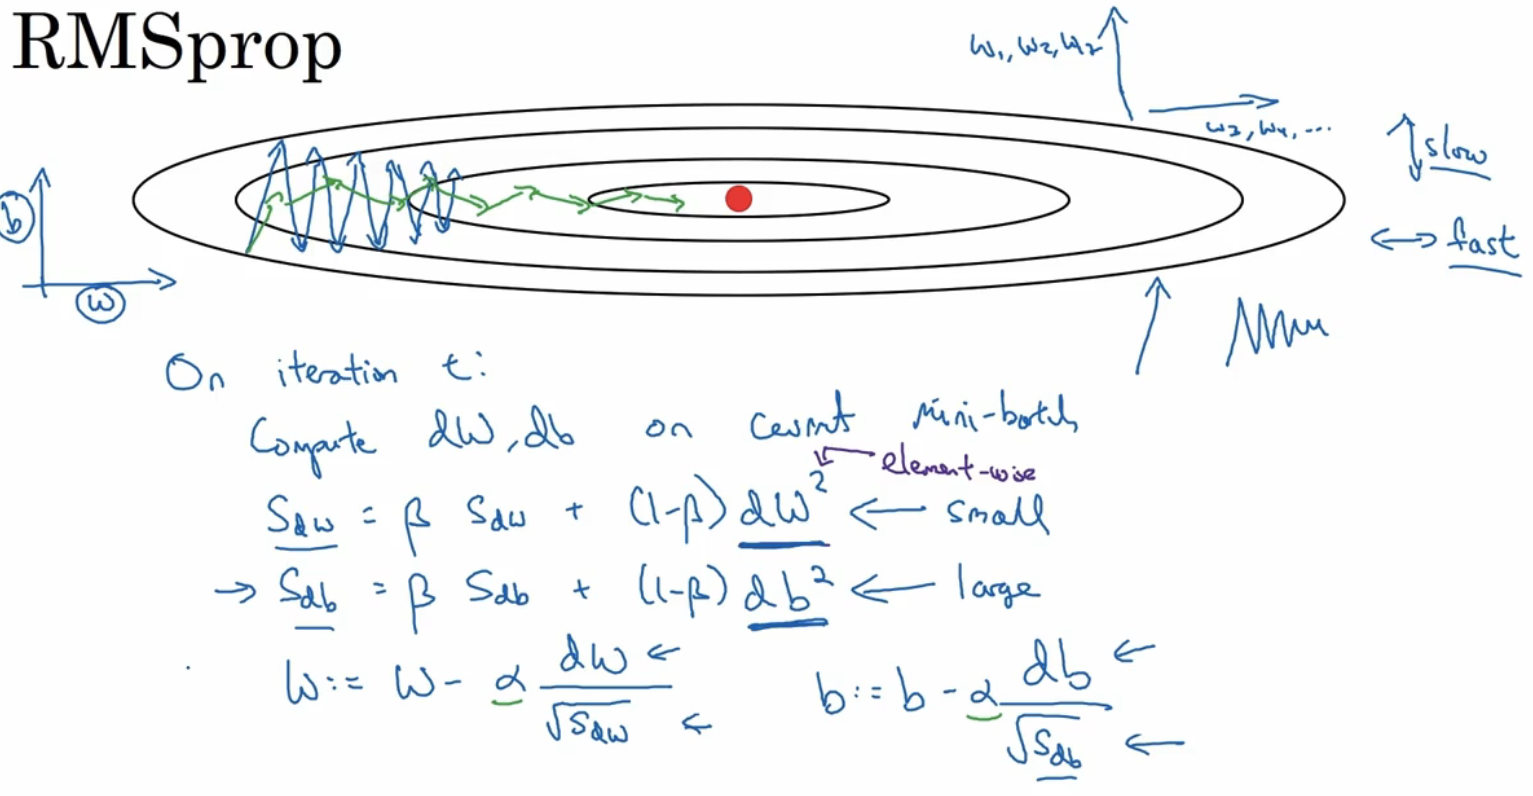 RMSprop
w₁, w₂, w₇
w₃, w₄, ...
slow
fast
b
w
On iteration t:
Compute dW, db on current mini-batch
element-wise
S_dw = β S_dw + (1-β) dW² ← small
→ S_db = β S_db + (1-β) db² ← large
W := W - α dW/√S_dw ← b := b - α db/√S_db ←